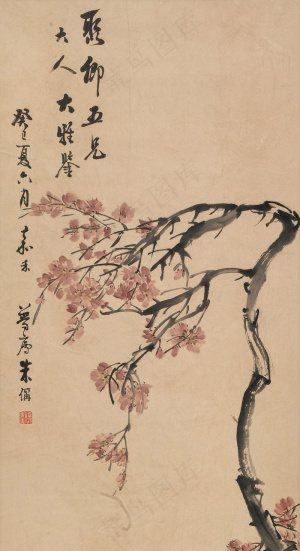 聚卿五兄
大人大雅鑒
癸巳夏六月嘉禾
夢廬朱偁